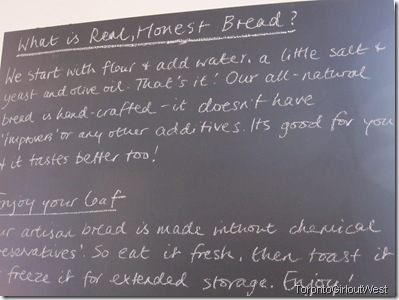 What is Real, Honest Bread?
We start with flour & add water, a little salt &
yeast and olive oil. That's it! Our all-natural
bread is hand-crafted - it doesn't have
'improvers' or any other additives. Its good for you
& it tastes better too!
Enjoy your loaf
ur artisan bread is made without chemical
reservatives'. So eat it fresh, then toast it
r freeze it for extended storage. Enjoy!
TorontoGirloutWest